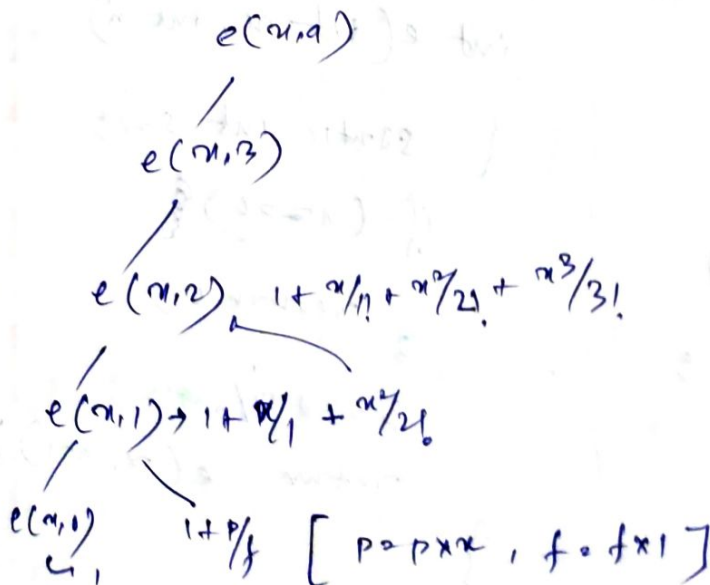 e(x,4)
e(x,3)
e(x,2) 1+ x/1! + x²/2! + x³/3!
e(x,1) → 1+ x/1 + x²/2!
e(x,0) 1+ p/f [ p=p*x , f=f*1 ]
↳ 1